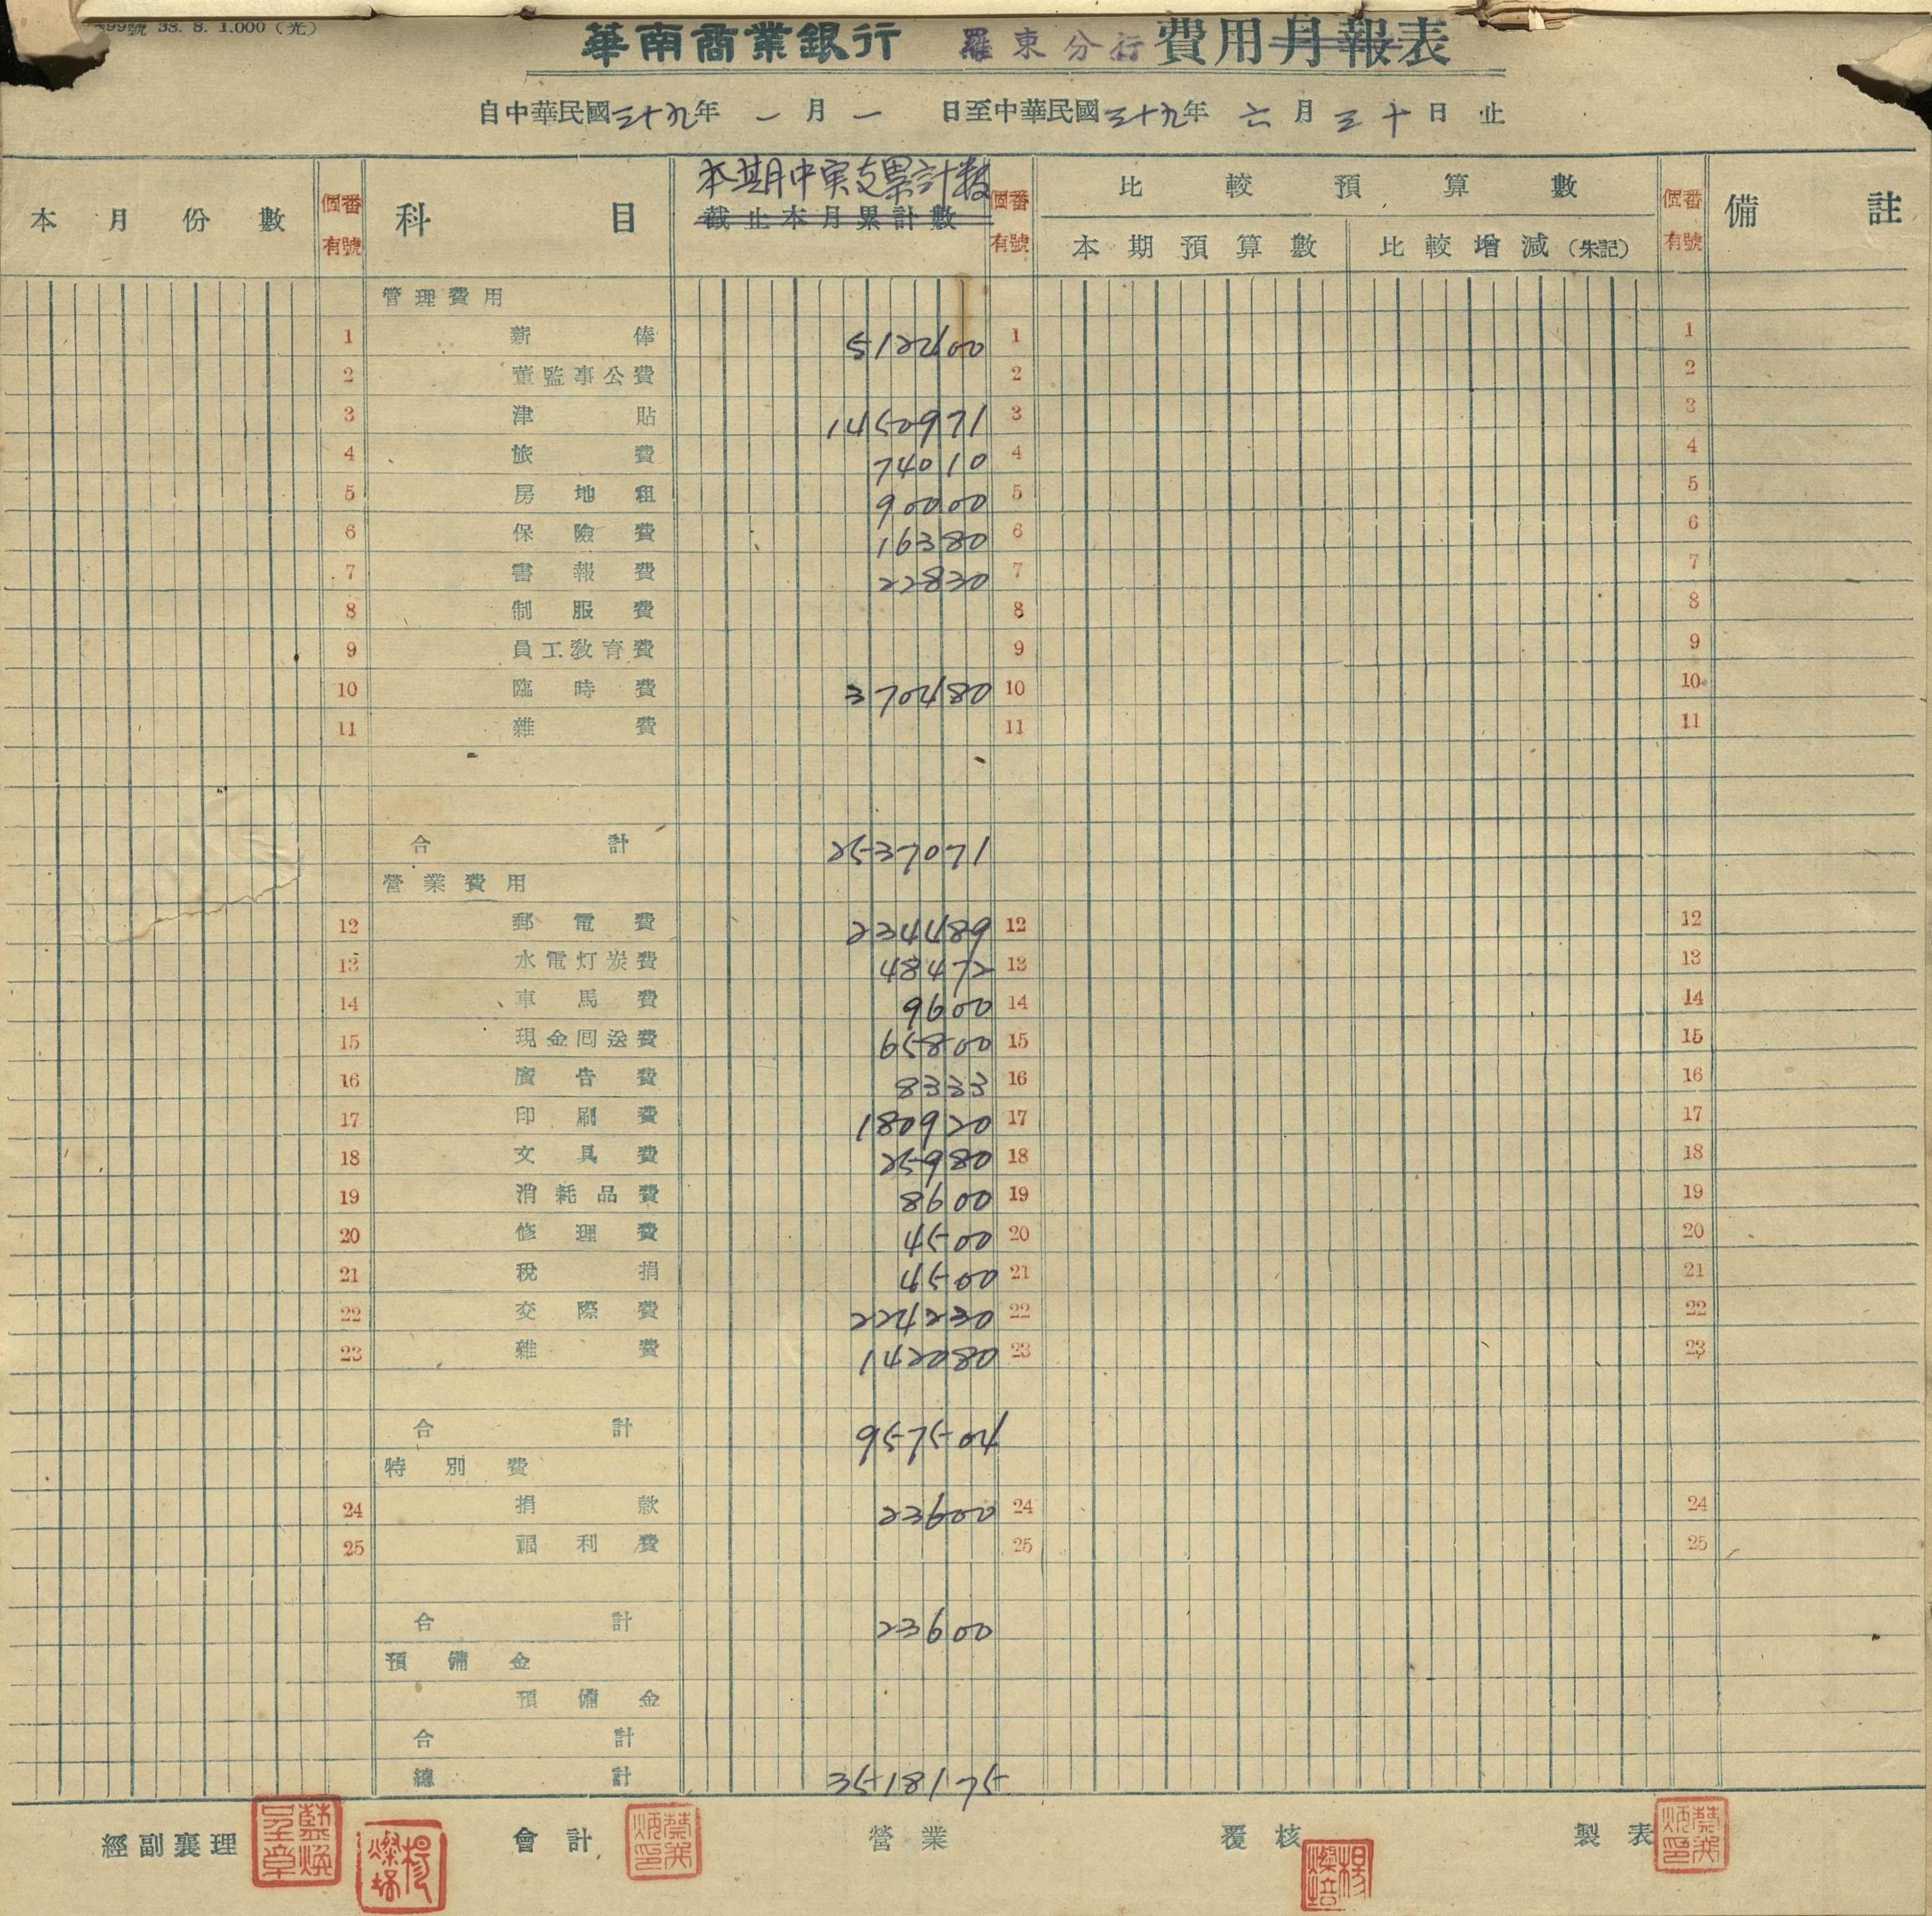 99號 38. 8. 1.000 (光)
華南商業銀行 羅東分行 費用月報表
自中華民國三十九年 一月一日至中華民國三十九年 六月三十日止
本期中実支累計数
本月份數 個有番號 科目 截止本月累計數 個有番號 比較預算數 個有番號 備註
本期預算數 比較增減(朱記)
管理費用
1 薪俸 512400 1 1
2 董監事公費 2 2
3 津貼 1450971 3 3
4 旅費 74010 4 4
5 房地租 90000 5 5
6 保險費 16380 6 6
7 書報費 22830 7 7
8 制服費 8 8
9 員工敎育費 9 9
10 臨時費 370480 10 10
11 雜費 11 11
合計 2537071
營業費用
12 郵電費 234489 12 12
13 水電灯炭費 48472 13 13
14 車馬費 9600 14 14
15 現金回送費 65800 15 15
16 廣告費 8333 16 16
17 印刷費 180920 17 17
18 文具費 25980 18 18
19 消耗品費 8600 19 19
20 修理費 4500 20 20
21 稅捐 4500 21 21
22 交際費 224230 22 22
23 雜費 142080 23 23
合計 957504
特別費
24 捐款 23600 24 24
25 福利費 25 25
合計 23600
預備金
預備金
合計
總計 3518175
經副襄理 會計 營業 覆核 製表